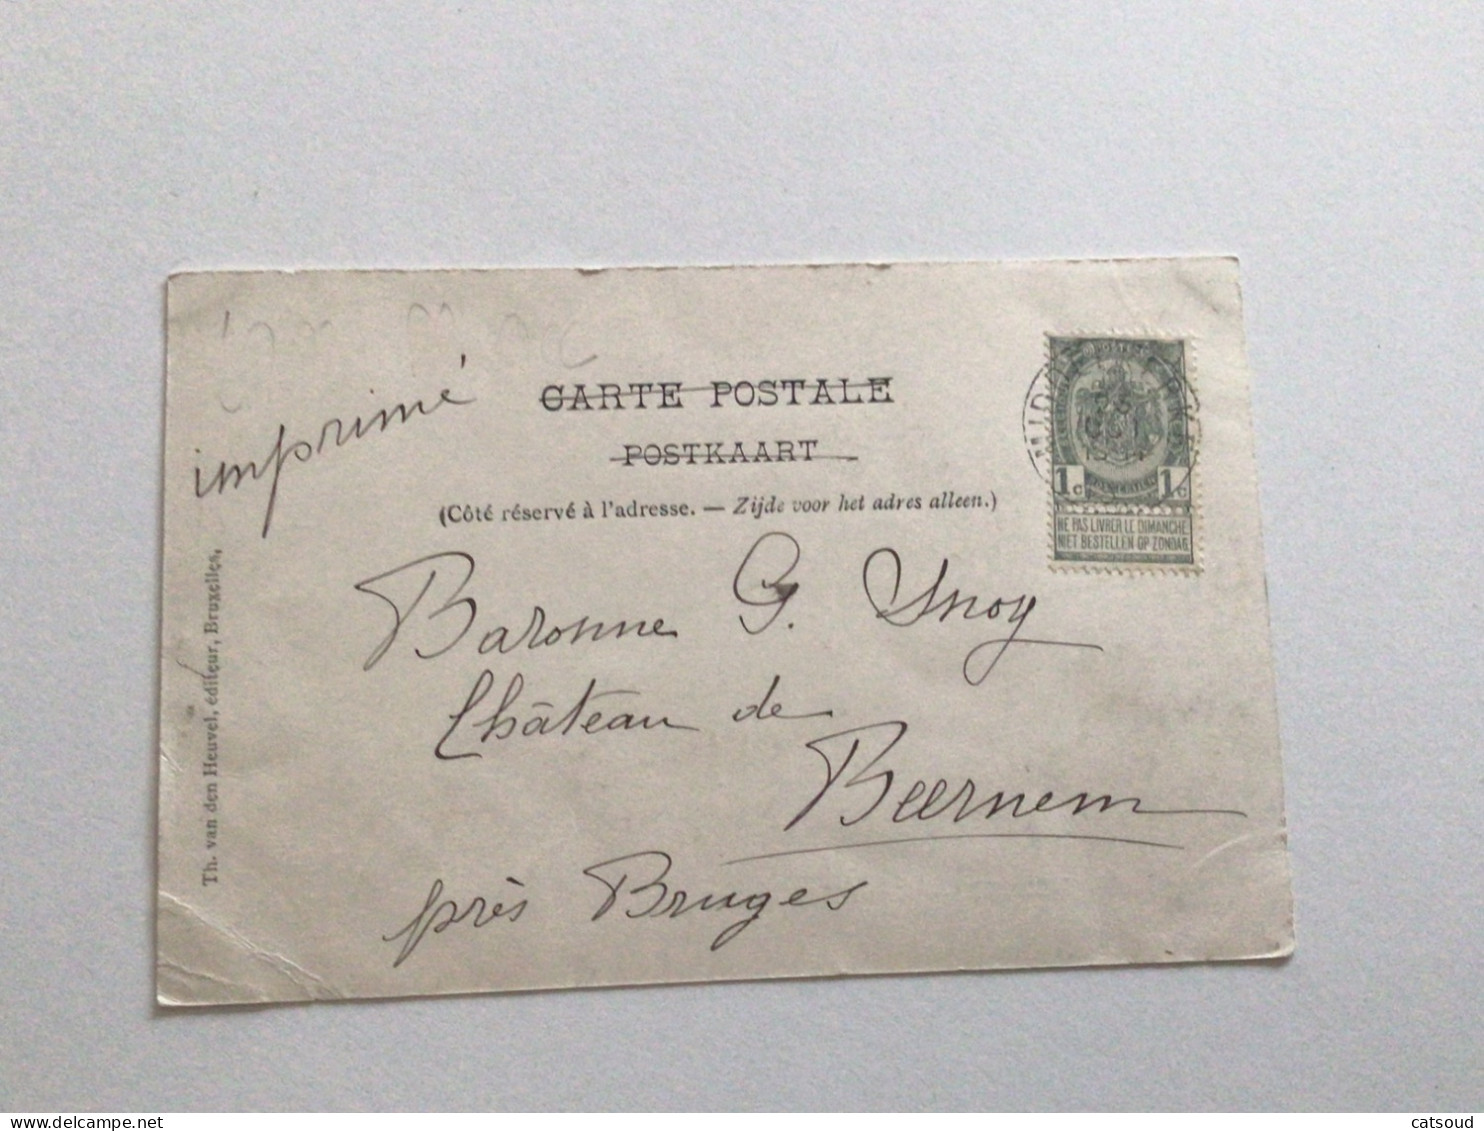 imprimé
CARTE POSTALE
POSTKAART
(Côté réservé à l'adresse. — Zijde voor het adres alleen.)
1c 1c
NE PAS LIVRER LE DIMANCHE
NIET BESTELLEN OP ZONDAG
Baronne G. Snoy
Château de
Beernem
près Bruges
Th. van den Heuvel, éditeur, Bruxelles,
delcampe.net
catsoud